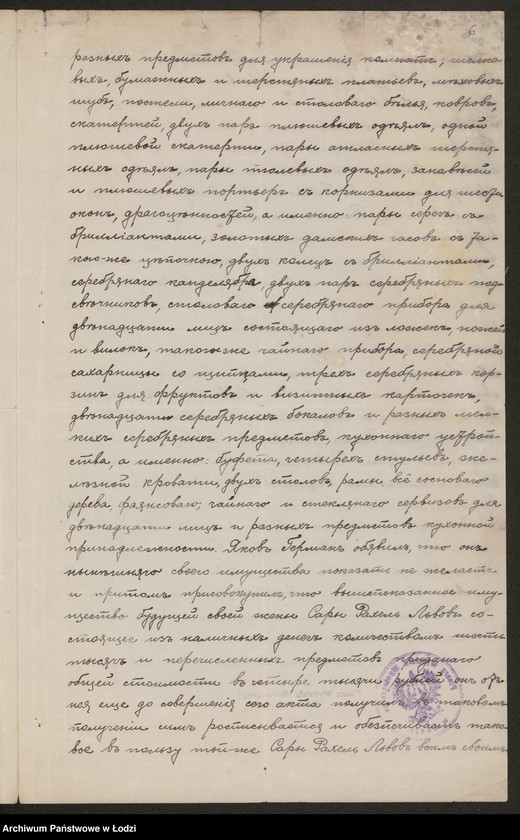 6
разныхъ предметовъ для украшенія комнатъ; шелко-
выхъ, бумажныхъ и шерстяныхъ платьевъ, мѣховыхъ
шубъ, постели, личнаго и столоваго бѣлья, ковровъ,
скатертей, двухъ паръ плюшевыхъ одѣялъ, одной
плюшевой скатерти, пары атласныхъ шерстя-
ныхъ одѣялъ, пары тюлевыхъ одѣялъ, занавѣсей
и плюшевыхъ портьеръ съ корнизами для шести
оконъ, драгоцѣнностей, а именно пары серегъ съ
брилліантами, золотыхъ дамскихъ часовъ съ та-
кою-же цѣпочкою, двухъ колецъ съ брилліантами,
серебрянаго канделябра, двухъ паръ серебряныхъ под-
свѣчниковъ, столоваго серебрянаго прибора для
двѣнадцати лицъ состоящаго изъ ложекъ ножей
и вилокъ, такого-же чайнаго прибора, серебряной
сахарницы со щипцами, трехъ серебряныхъ кор-
зинъ для фруктовъ и визитныхъ карточекъ,
двѣнадцати серебряныхъ бокаловъ и разныхъ мел-
кихъ серебряныхъ предметовъ, кухоннаго устрой-
ства, а именно: буфета, четырехъ стульевъ, же-
лѣзной кровати, двухъ столовъ, рамы, всё сосноваго
дерева, фаянсоваго, чайнаго и стекляннаго сервизовъ для
двѣнадцати лицъ и разныхъ предметовъ кухонной
принадлежности. Яковъ Германъ объявилъ, что онъ
нынѣшняго своего имущества показать не желаетъ
и притомъ присовокупилъ, что вышепоказанное иму-
щество будущей своей жены Сары Рахель Львовъ со-
стоящее изъ наличныхъ денегъ количествомъ шесть
тысячъ и перечисленныхъ предметовъ приданаго
общей стоимости въ четыре тысячи рублей онъ отъ
нея еще до совершенія сего акта получилъ, въ таковомъ
полученіи симъ росписывается и обезпечиваетъ тако-
вое въ пользу той-же Сары Рахель Львовъ всемъ своимъ
Archiwum Państwowe w Łodzi